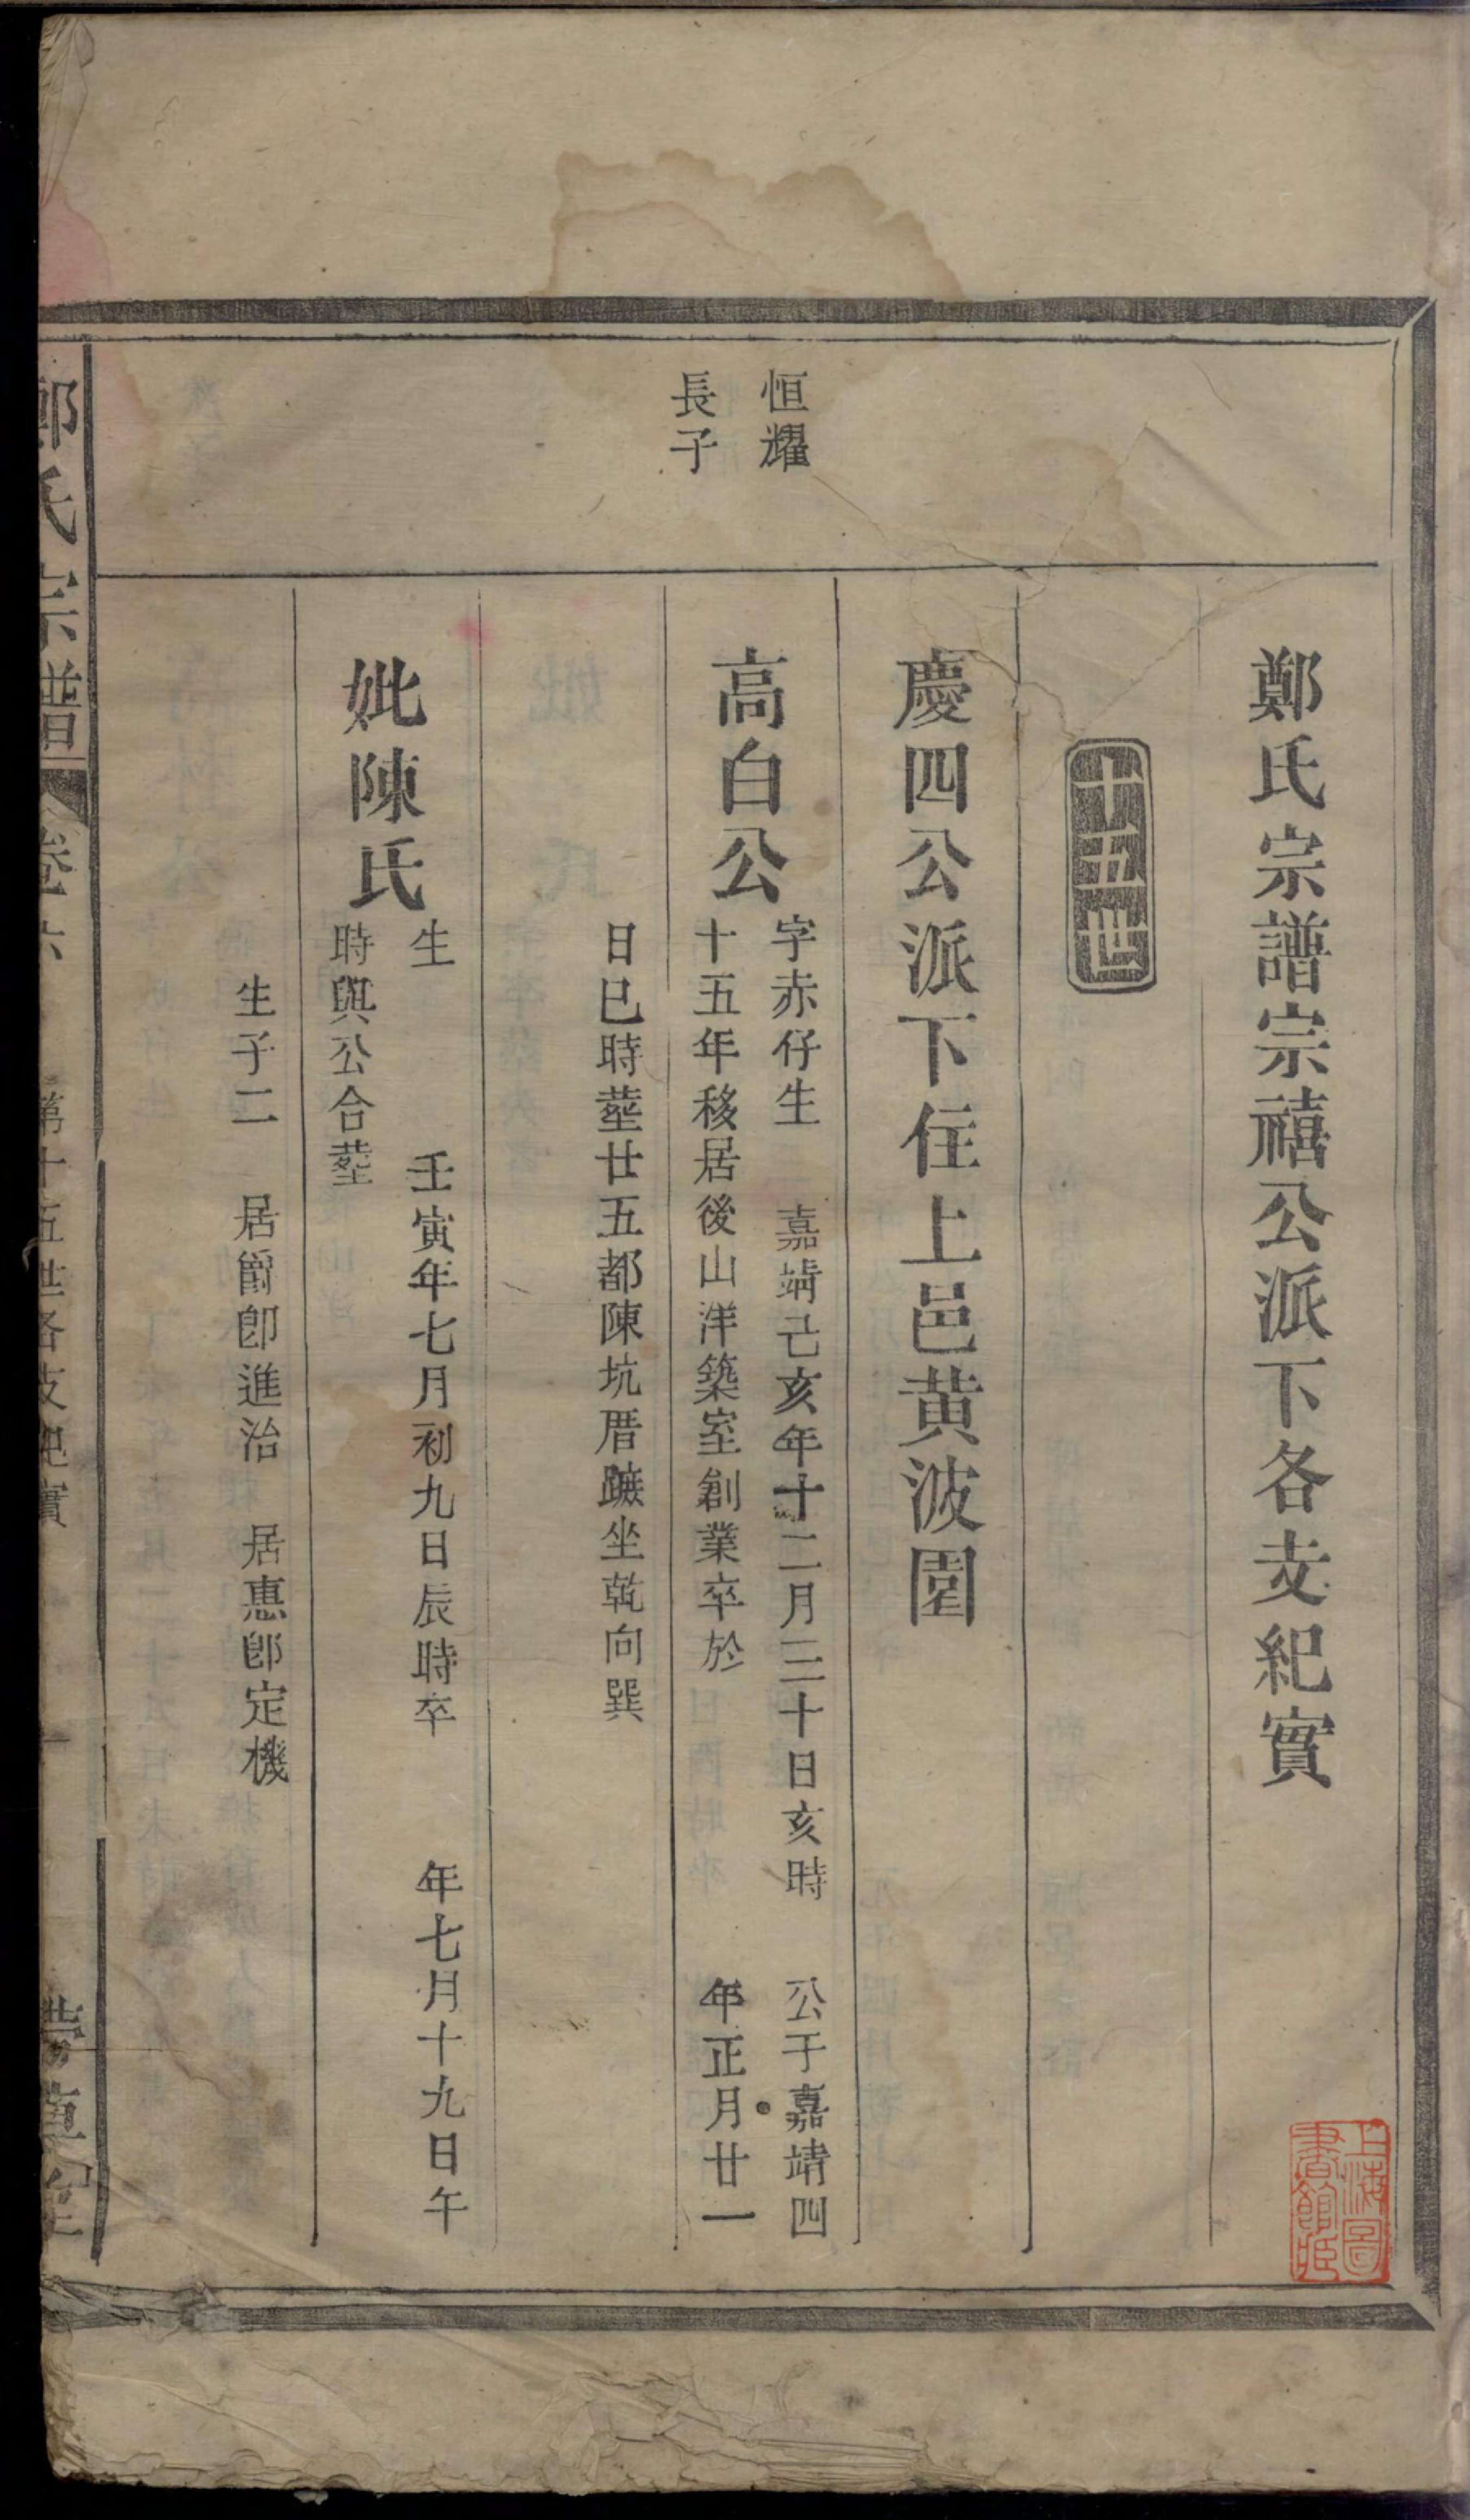 鄭氏宗譜宗禧公派下各支紀實
十五世
慶四公派下住上邑黄波園
恒耀
長子
高白公
字赤仔生 嘉靖己亥年十二月三十日亥時 公于嘉靖四
十五年移居後山洋築室創業卒於 年正月廿一
日巳時塟廿五都陳坑厝𨂍坐乾向巽
妣陳氏
生 壬寅年七月初九日辰時卒 年七月十九日午
時與公合塟
生子二 居爵卽進治 居惠卽定機
鄭氏宗譜
卷六
第十五世各支紀實
一
上海圖
書館藏